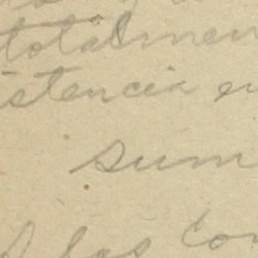 totalmen
istencia en
sum
A los con